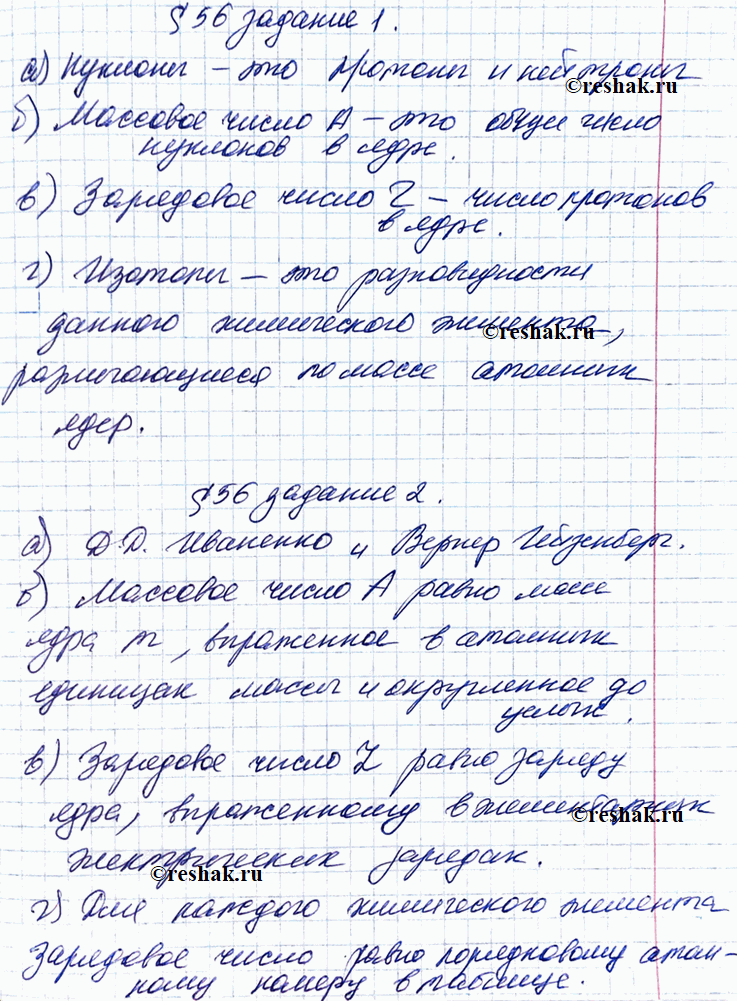 §56 задание 1.
а) Нуклоны – это протоны и нейтроны
©reshak.ru
б) Массовое число A – это общее число
нуклонов в ядре.
в) Зарядовое число Z – число протонов
в ядре.
г) Изотопы – это разновидности
данного химического элемента,
©reshak.ru
различающиеся по массе атомных
ядер.
§56 задание 2.
а) Д.Д. Иваненко и Вернер Гейзенберг.
б) Массовое число A равно массе
ядра m, выраженное в атомных
единицах массы и округленное до
целых.
в) Зарядовое число Z равно заряду
ядра, выраженному в элементарных
©reshak.ru
электрических зарядах.
©reshak.ru
г) Для каждого химического элемента
зарядовое число равно порядковому атом-
ному номеру в таблице.